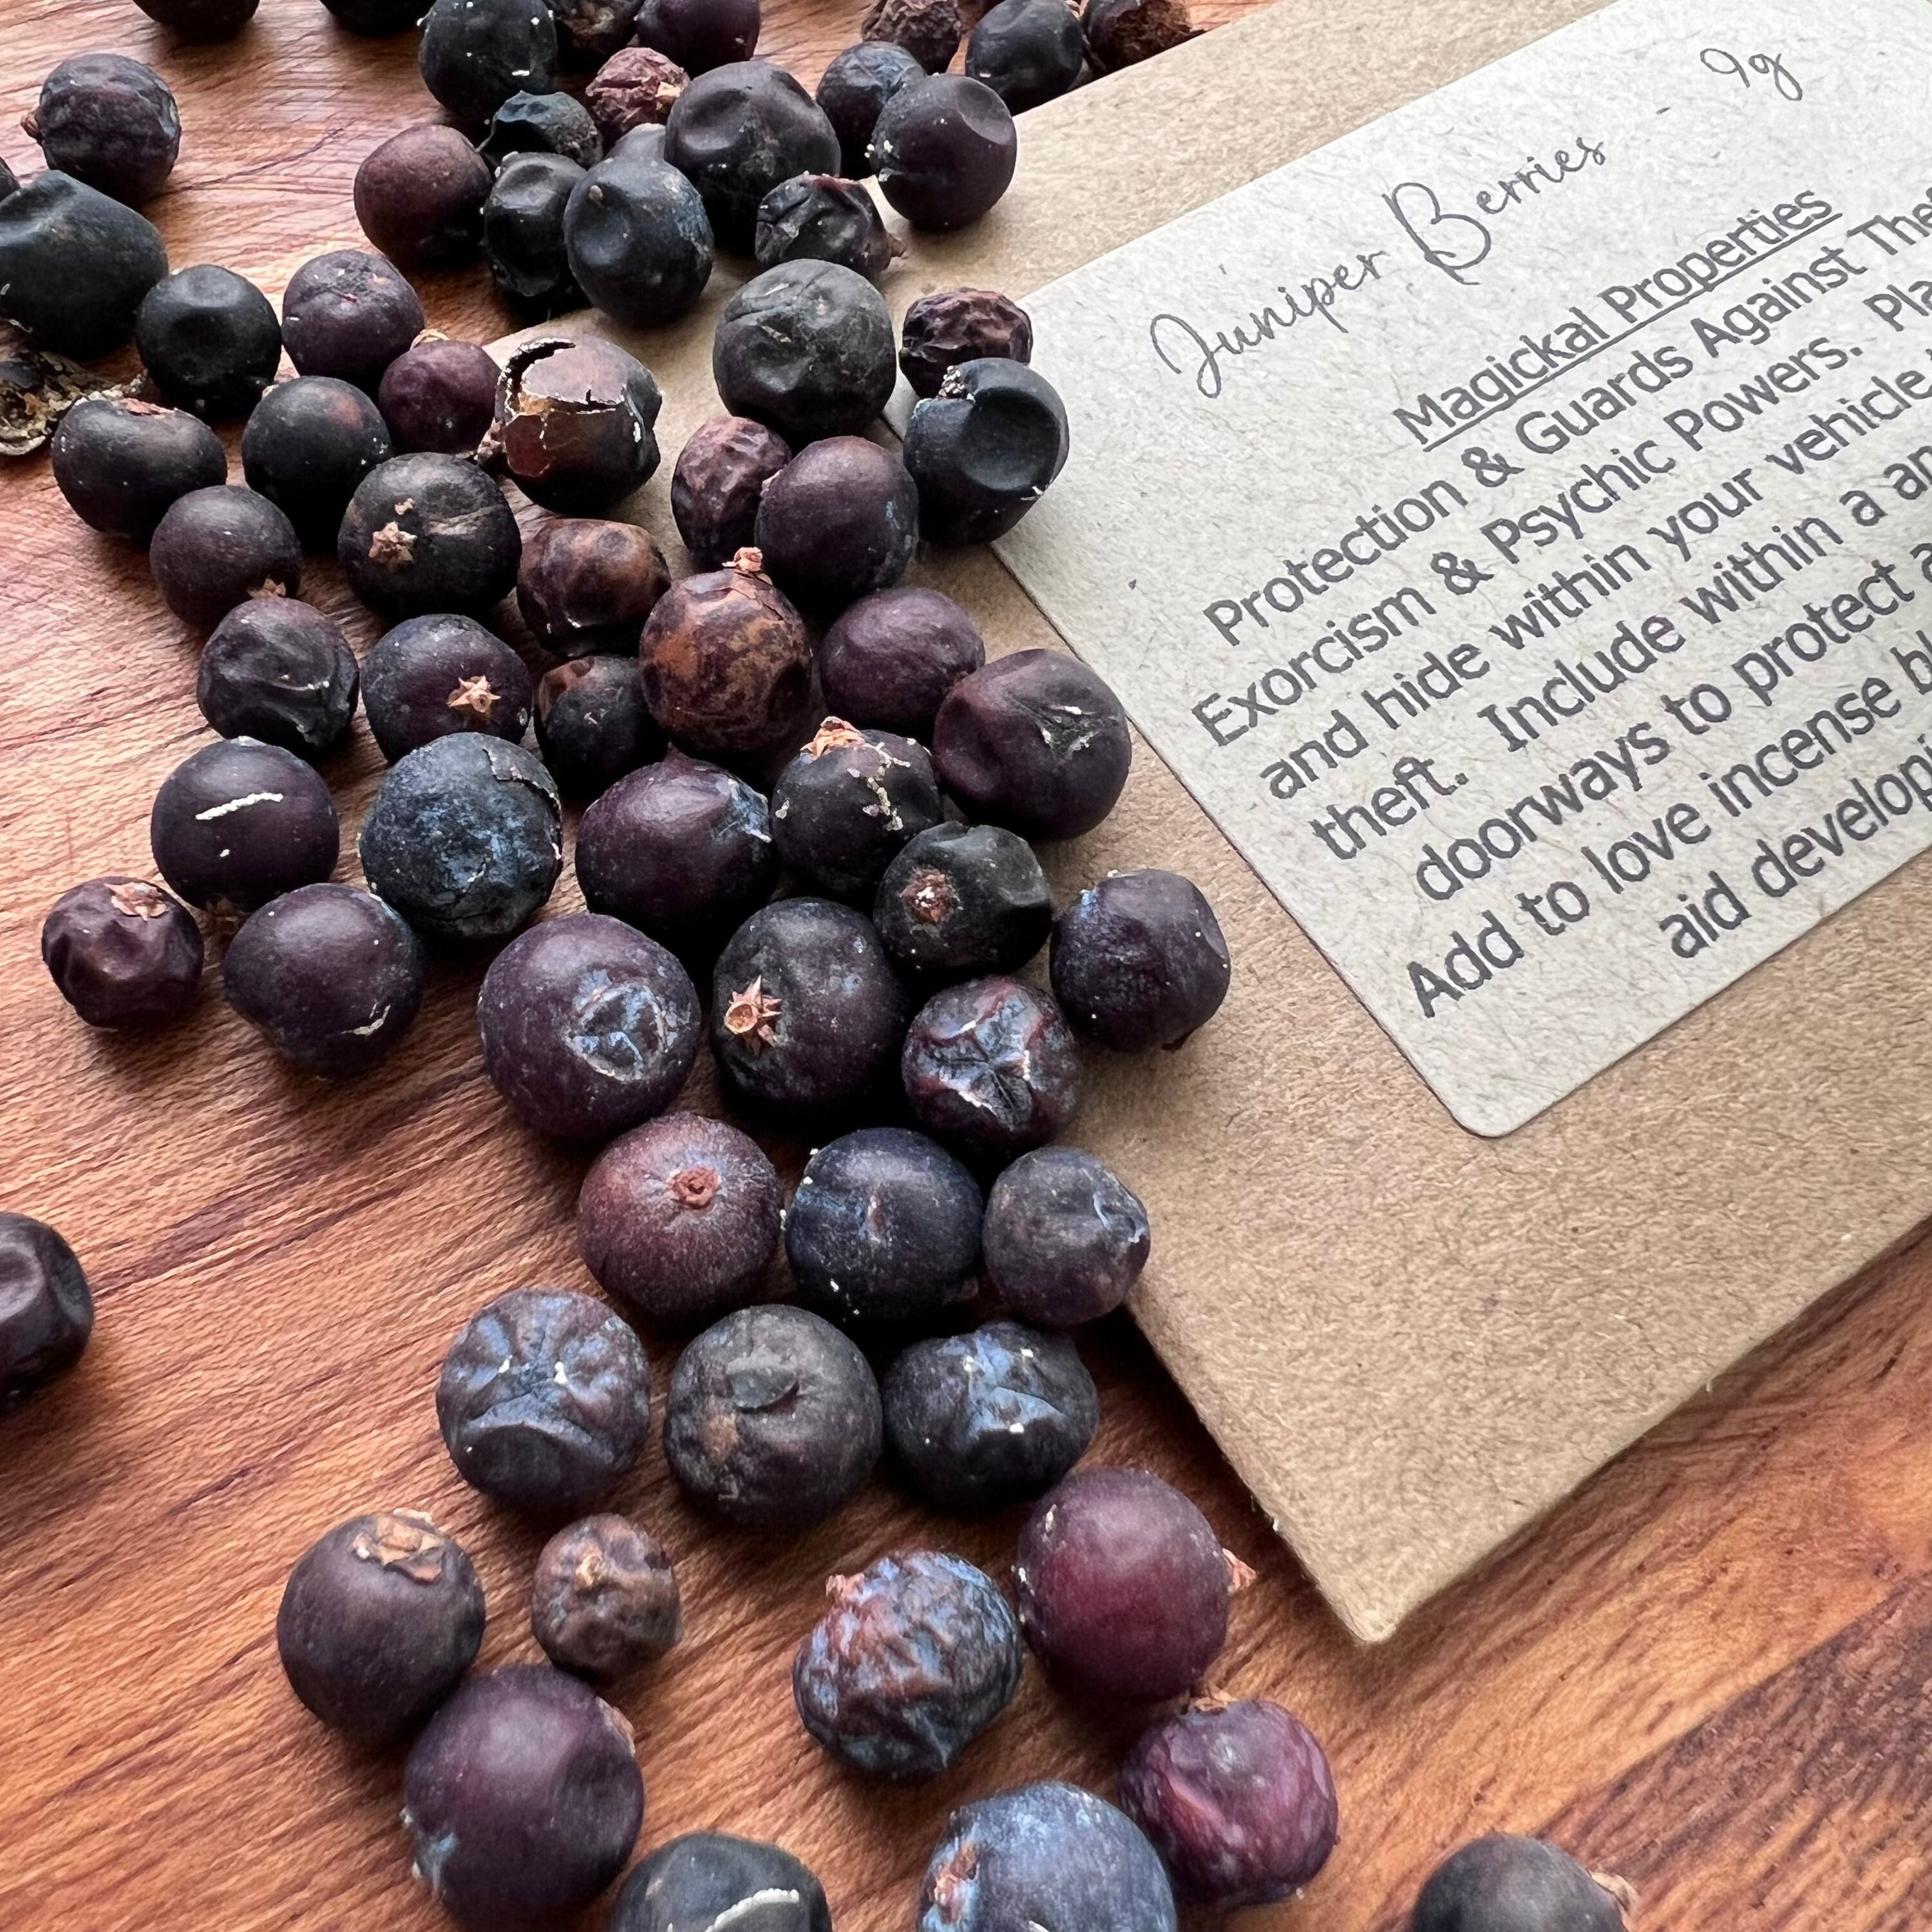 Juniper Berries - 9g
Magickal Properties
Protection & Guards Against
Exorcism & Psychic Powers.
and hide within your vehicle
theft. Include within a
doorways to protect
Add to love incense
aid